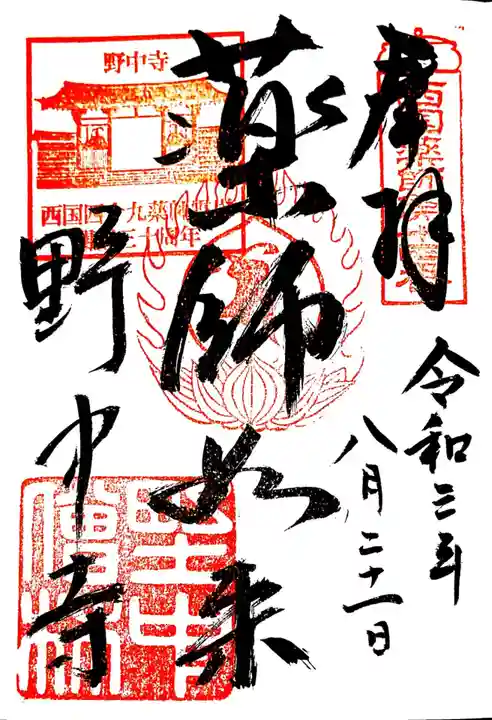 奉拝
令和三年
八月二十一日
薬師如来
野中寺
野中寺
西国四十九薬師霊場
三十周年